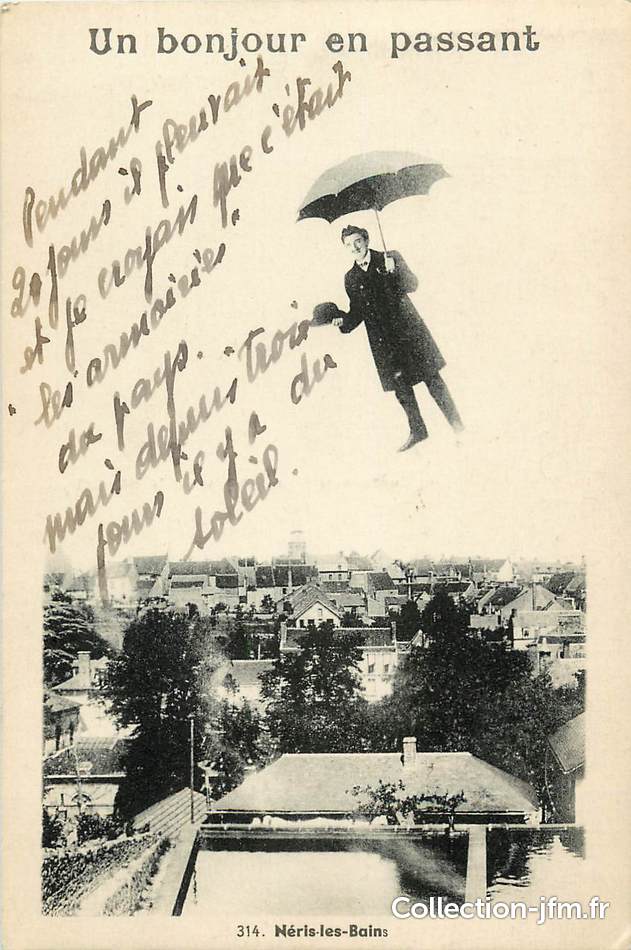 Un bonjour en passant
Pendant
20 jours il pleuvait
et je croyais que c'était
"les armoiries"
du pays.
mais depuis trois
jours il y a du
soleil.
314. Néris-les-Bains
Collection-jfm.fr